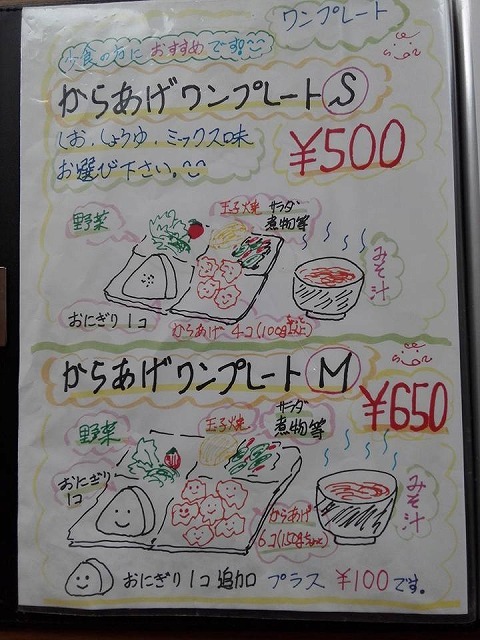 ワンプレート
少食の方に おすすめ です!
からあげワンプレート S
しお、しょうゆ、ミックス味
お選び下さい。
¥500
野菜
玉子焼
サラダ
煮物等
みそ汁
おにぎり1コ
からあげ 4コ(100g以上)
からあげワンプレート M
¥650
野菜
玉子焼
サラダ
煮物等
おにぎり
1コ
みそ汁
からあげ
6コ(150g以上)
おにぎり 1コ 追加 プラス ¥100です。